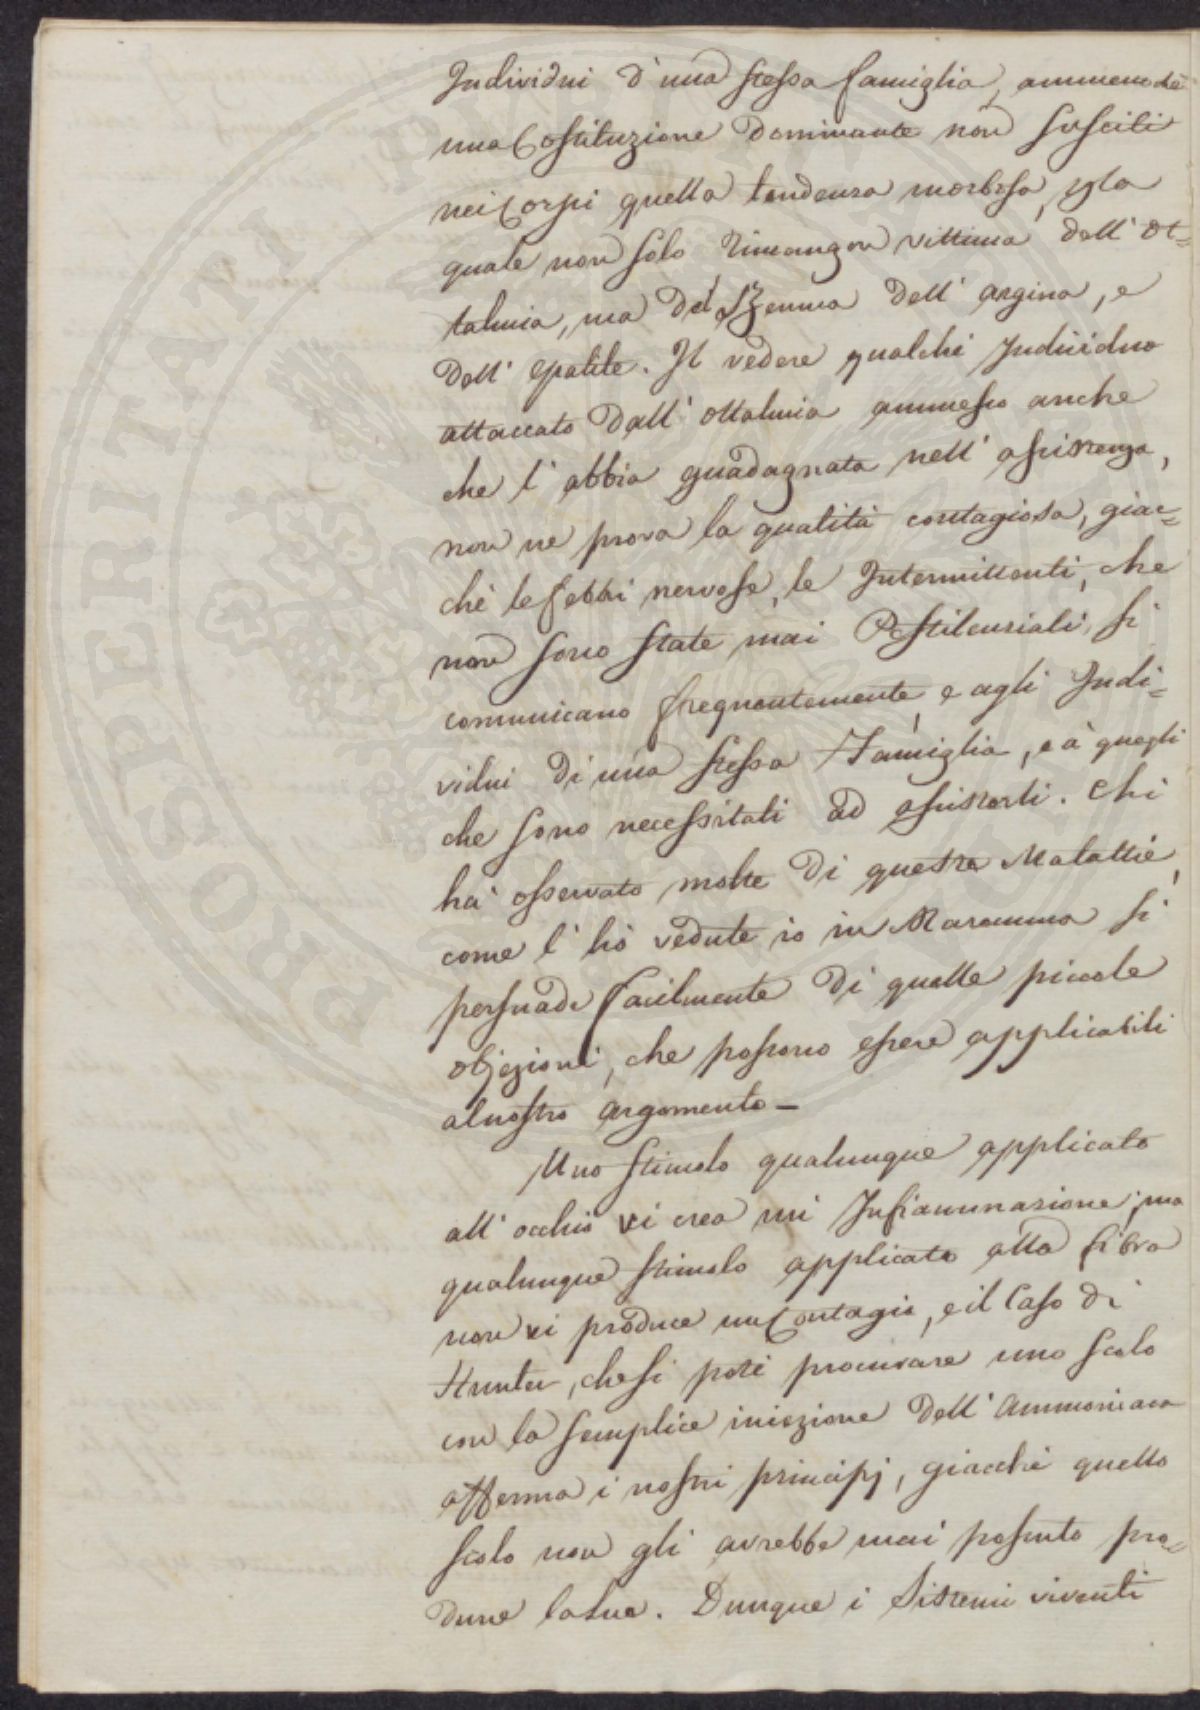 Individui d'una stessa famiglia, ammenochè
una Costituzione Dominante non susciti
nei Corpi quella tendenza morbosa, p la
quale non solo rimangon vittima dell' Ot=
talmia, ma del dell' argina, e
dell' epatite. Il vedere qualchi Individuo
attaccato dall' ottalmia ammesso anche
che l' abbia guadagnata nell' assistenza,
non ne prova la qualità contagiosa, giac=
chè le febbri nervose, le Intermittenti, che
non sono state mai Pestilenziali, si
comunicano frequentemente, e agli Indi=
vidui di una stessa Famiglia, e à quegli
che sono necessitati ad assisterli. Chi
ha' osservato molte di queste Malattie,
come l' hò vedute io in Maremma si
persuade facilmente di quelle piccole
objezioni, che possono essere applicabili
al nostro argomento _
Uno stimolo qualunque applicato
all' occhio vi crea un' Infiammazione; ma
qualunque stimolo applicato alla fibra
non vi produce un Contagio, e il Caso di
Hunter, che si potè procurare uno scolo
con la semplice iniezione dell' Ammoniaca
afferma i nostri principj, giacchè quello
scolo non gli avrebbe mai possuto pro=
durre la lue. Dunque i Sistemi viventi
PROSPERITATI PUBLICAE AUGENDAE